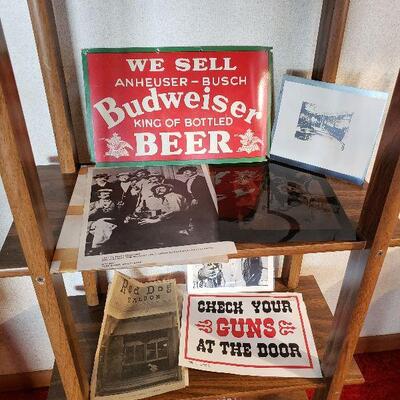 WE SELL
ANHEUSER-BUSCH
Budweiser
KING OF BOTTLED
BEER
Red Dog
SALOON
CHECK YOUR
GUNS
AT THE DOOR